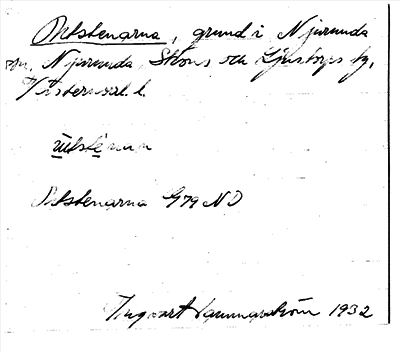 Pelstenarna, grund i Njurunda
sn, Njurunda, Sköns och Ljustorps tg,
Västernorrl. l.
Pelstenarna G79 NO
Ingvart Hammarström 1932